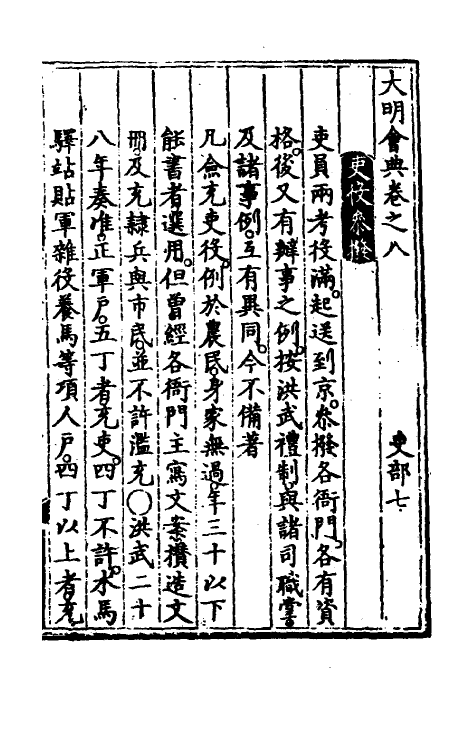 大明會典卷之八 吏部七
吏役參撥
吏員兩考役滿。起送到京。叅撥各衙門。各有資
格。後又有辦事之例。按洪武禮制。與諸司職掌
及諸事例。互有異同。今不備著
凡僉充吏役。例於農民。身家無過。年三十以下
能書者選用。但曾經各衙門主寫文案。攢造文
冊。及充隸兵與市民。並不許濫充〇洪武二十
八年奏准。正軍戶。五丁者充吏。四丁不許。水馬
驛站貼軍雜役養馬等項人戶。四丁以上者充